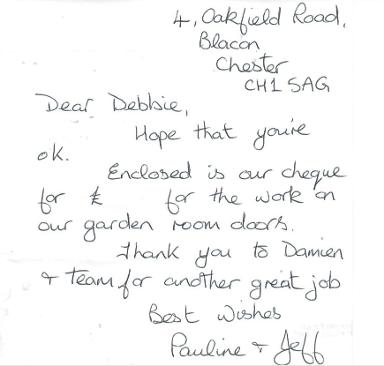 4, Oakfield Road,
Blacon
Chester
CH1 5AG
Dear Debbie,
Hope that you're
ok.
Enclosed is our cheque
for £ for the work on
our garden room doors.
Thank you to Damien
& team for another great job
Best Wishes
Pauline & Jeff